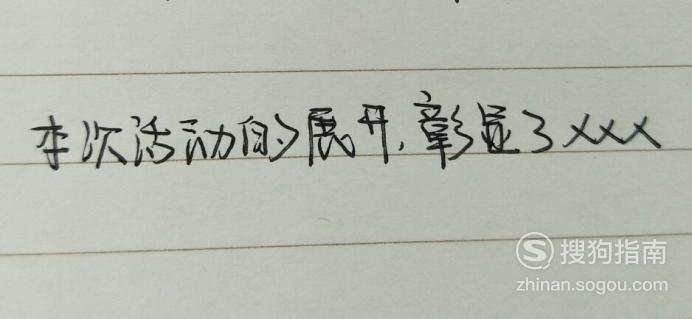 本次活动的展开,彰显了xxx
搜狗指南
zhinan.sogou.com